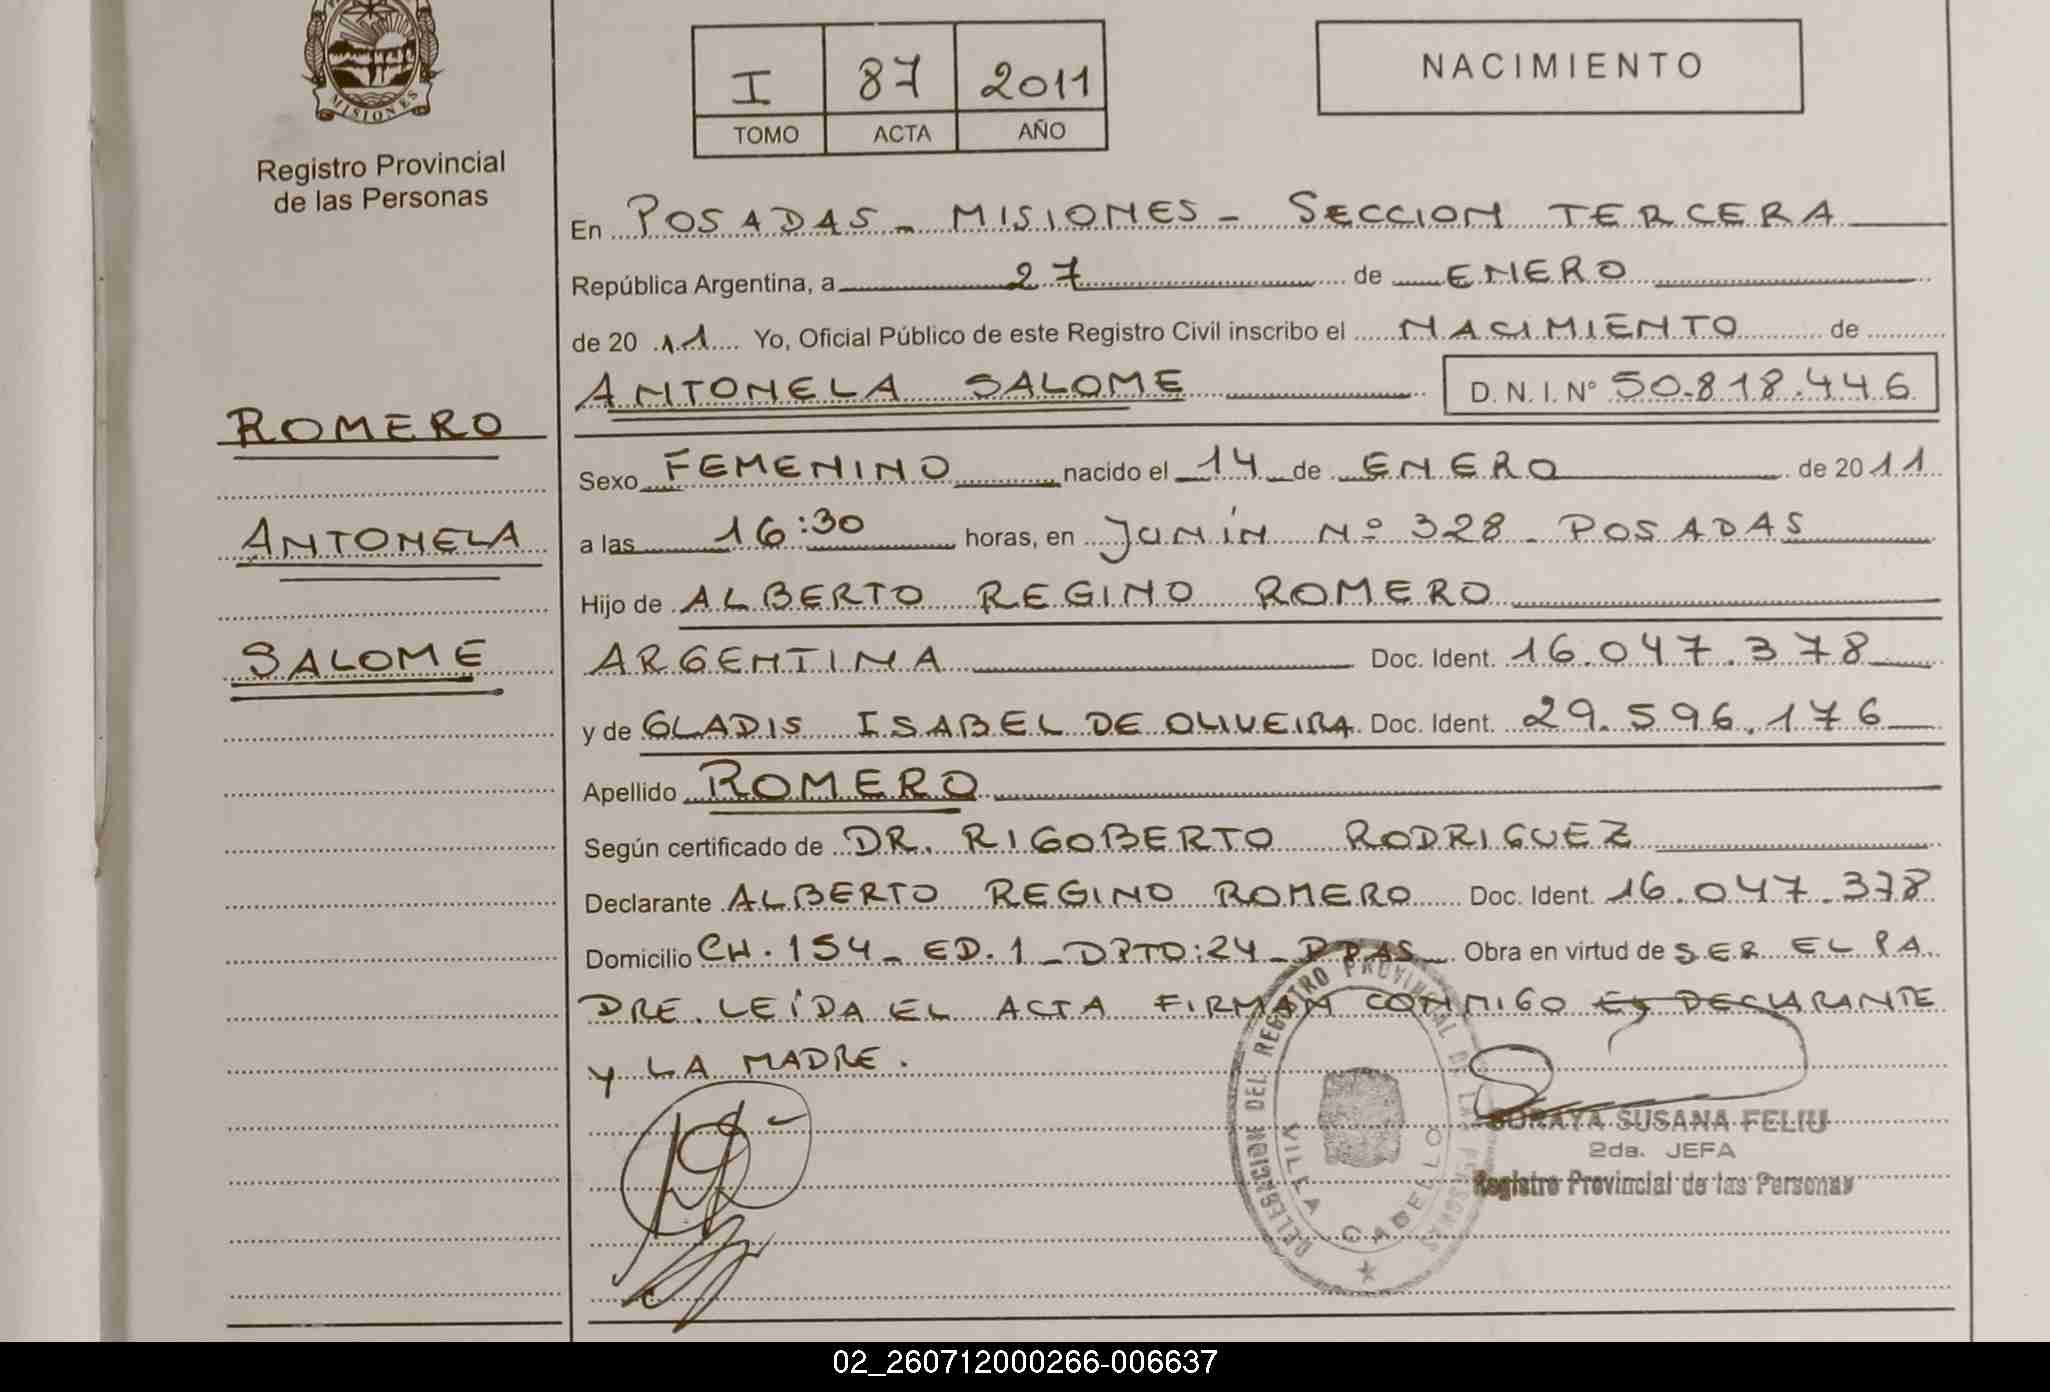 MISIONES
Registro Provincial
de las Personas
I 87 2011
TOMO ACTA AÑO
NACIMIENTO
En POSADAS - MISIONES - SECCION TERCERA
República Argentina, a 27 de ENERO
de 20 11 Yo, Oficial Público de este Registro Civil inscribo el NACIMIENTO de
ANTONELA SALOME D. N. I. Nº 50.818.446
ROMERO
ANTONELA
SALOME
Sexo FEMENINO nacido el 14 de ENERO de 2011
a las 16:30 horas, en JUNÍN Nº 328 - POSADAS
Hijo de ALBERTO REGINO ROMERO
ARGENTINA Doc. Ident. 16.047.378
y de GLADIS ISABEL DE OLIVEIRA Doc. Ident. 29.596.176
Apellido ROMERO
Según certificado de DR. RIGOBERTO RODRIGUEZ
Declarante ALBERTO REGINO ROMERO Doc. Ident. 16.047.378
Domicilio CH. 154 - ED. 1 - DPTO: 24 - PPAS - Obra en virtud de SER EL PA
DRE. LEÍDA EL ACTA FIRMAN CONMIGO EL DECLARANTE
Y LA MADRE.
DELEGACION DEL REGISTRO PROVINCIAL DE LAS PERSONAS
VILLA CABELLO
SORAYA SUSANA FELIU
2da. JEFA
Registro Provincial de las Personas
02_260712000266-006637